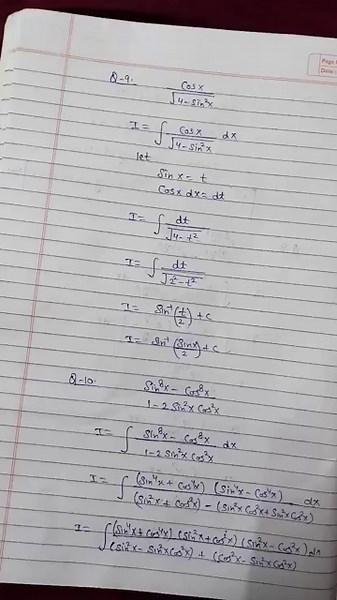 Page
Date
Q-9. cosx / √4-sin²x
I = ∫ cosx / √4-sin²x dx
let
sin x = t
cosx dx = dt
I = ∫ dt / √4-t²
I = ∫ dt / √2²-t²
I = sin⁻¹(t/2) + c
I = sin⁻¹(sinx/2) + c
Q-10. sin⁸x - cos⁸x / 1-2 sin²x cos²x
I = ∫ sin⁸x - cos⁸x / 1-2 sin²x cos²x dx
I = ∫ (sin⁴x + cos⁴x) (sin⁴x - cos⁴x) / (sin²x + cos²x) - (sin²x cos²x + sin²x cos²x) dx
I = ∫ (sin⁴x + cos⁴x) (sin²x + cos²x) (sin²x - cos²x) dx / (sin²x - sin²x cos²x) + (cos²x - sin²x cos²x)